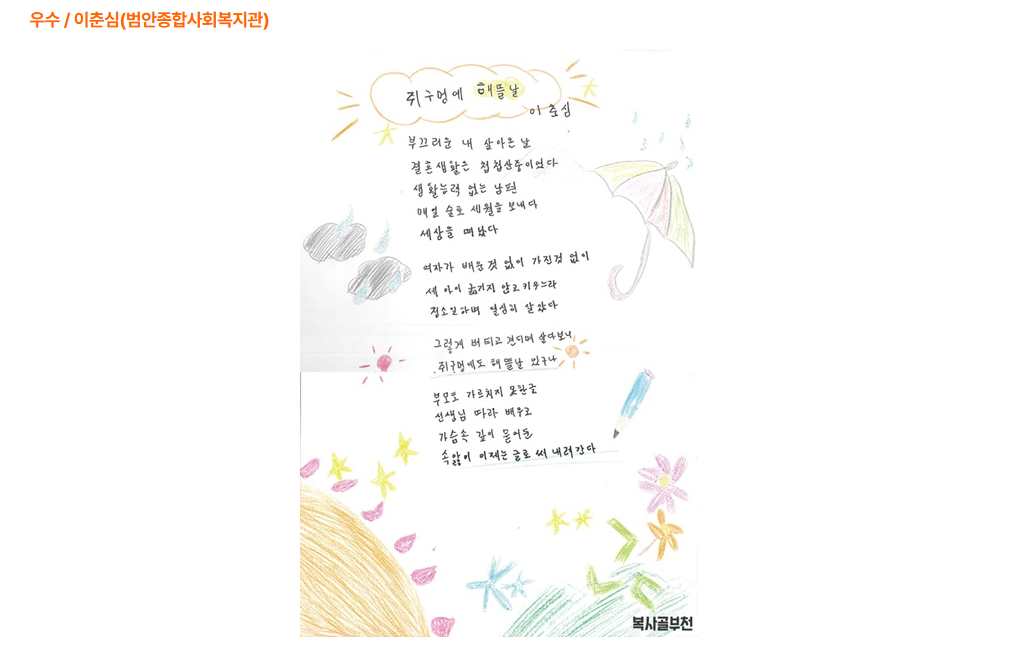 우수 / 이춘심(범안종합사회복지관)
쥐구멍에 해뜰날
이춘심
부끄러운 내 살아온 날
결혼생활은 첩첩산중이었다
생활능력 없는 남편
매일 술로 세월을 보내다
세상을 떠났다
여자가 배운것 없이 가진것 없이
세 아이 굶기지 않고 키우느라
청소일하며 열심히 살았다
그렇게 버티고 견디며 살다보니
쥐구멍에도 해뜰날 있구나
부모도 가르치지 못한글
선생님 따라 배우고
가슴속 깊이 묻어둔
속앓이 이제는 글로 써 내려간다
복사골부천